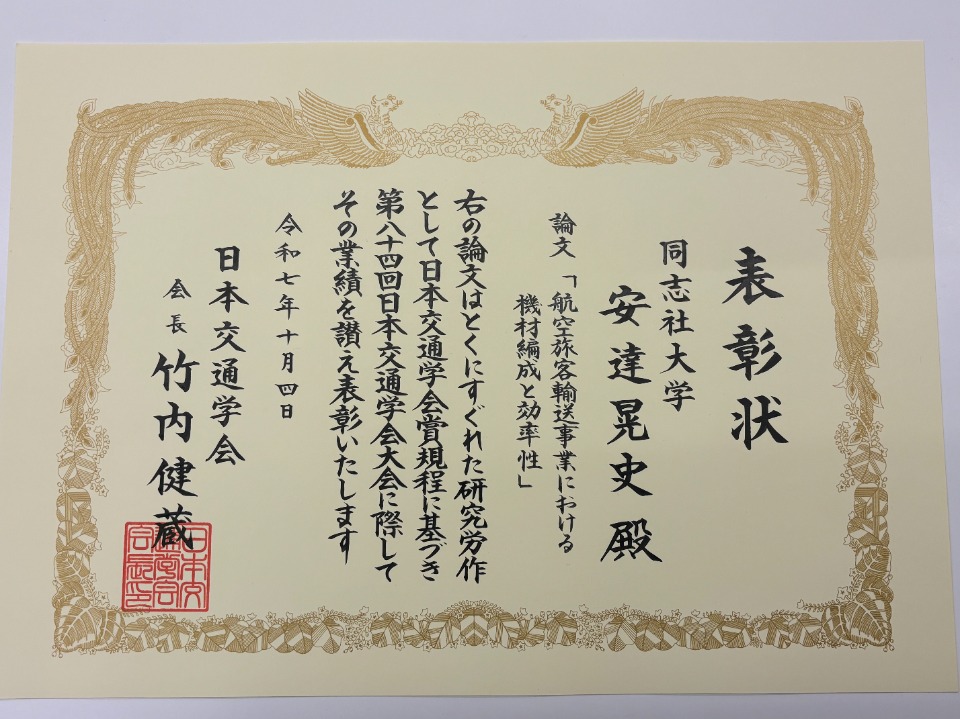 表彰状
同志社大学
安達晃史 殿
論文「航空旅客輸送事業における
機材編成と効率性」
右の論文はとくにすぐれた研究労作
として日本交通学会賞規程に基づき
第八十四回日本交通学会大会に際して
その業績を讃え表彰いたします
令和七年十月四日
日本交通学会
会長 竹内健蔵
日本交
通学会
会長印